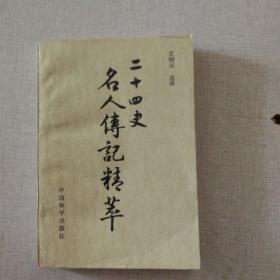 二十四史
名人傳記精萃
选译
中国和平出版社